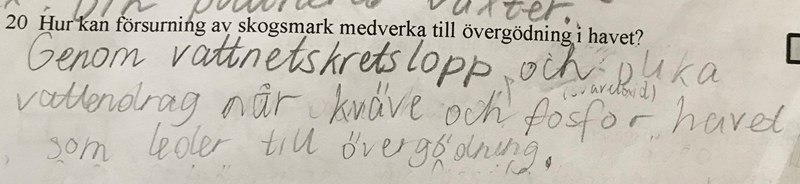 växter.
20 Hur kan försurning av skogsmark medverka till övergödning i havet?
Genom vattnetskretslopp och olika
vattendrag når kväve och fosfor havet
som leder till övergödning.